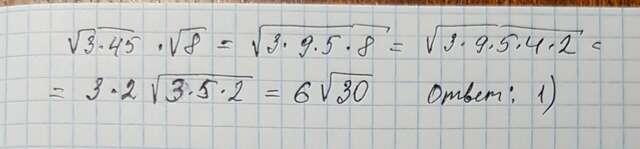 √3·45 · √8 = √3·9·5·8 = √3·9·5·4·2 =
= 3·2 √3·5·2 = 6√30 Ответ: 1)